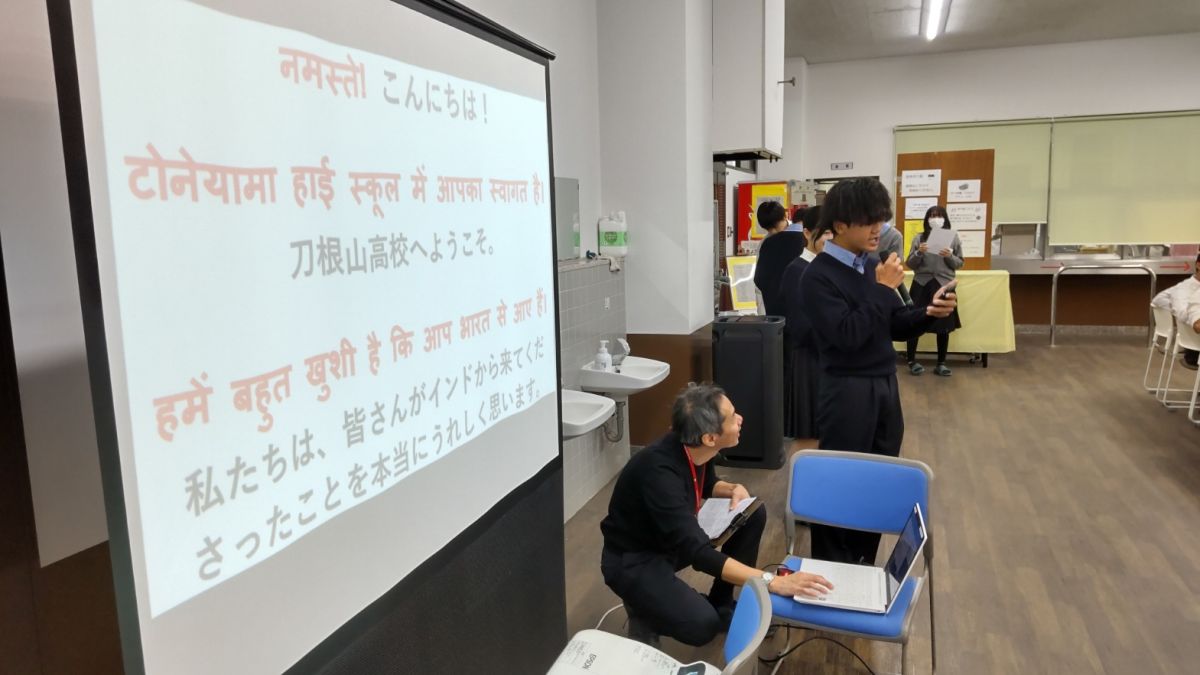 नमस्ते! こんにちは！
टोनेयामा हाई स्कूल में आपका स्वागत है।
刀根山高校へようこそ。
हमें बहुत खुशी है कि आप भारत से आए हैं।
私たちは、皆さんがインドから来てくだ
さったことを本当にうれしく思います。
EPSON